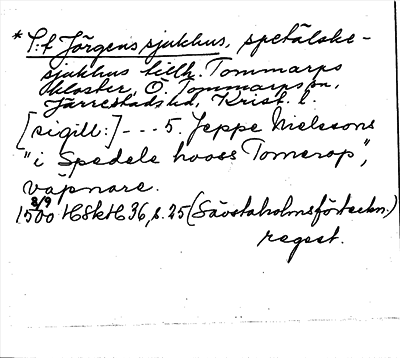 * S:t Jörgens sjukhus, spetälske-
sjukhus tillh. Tommarps
kloster, Ö. Tommarps sn,
Järrestads hd, Krist. l.
[sigill:] --- 5. Jeppe Nielssons
"i Spedele hooss Tomerop",
väpnare.
8/9
1500 HSH 36, s. 25 (Sävstaholmsförteckn.)
regest.